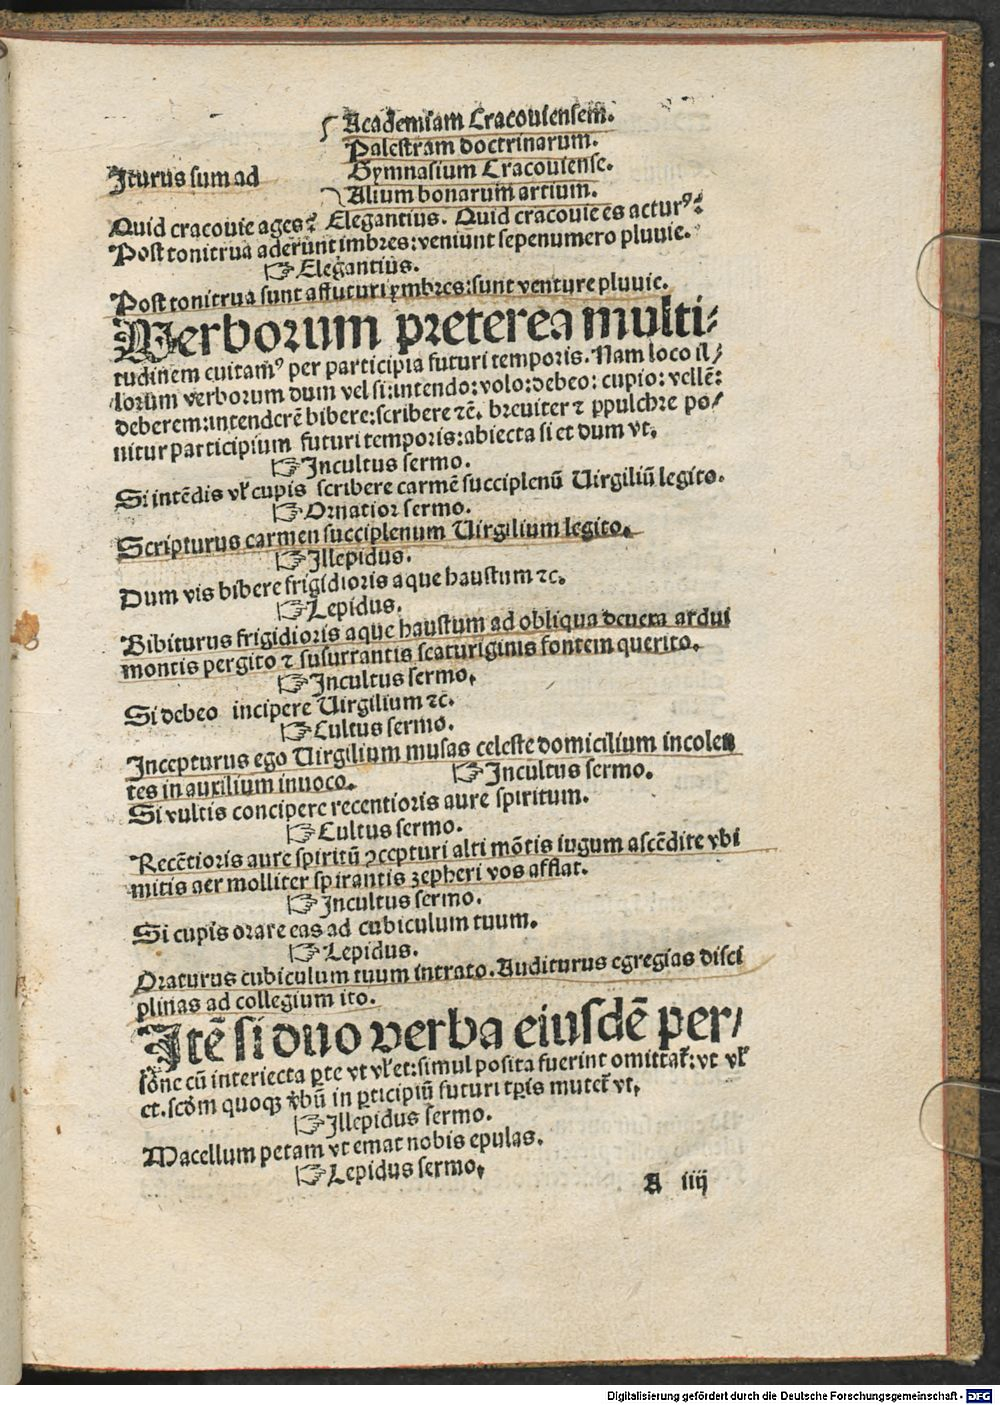 Academiam Cracouiensem.
Palestram doctrinarum.
Iturus sum ad Gymnasium Cracouiense.
Alium bonarum artium.
Quid cracouie ages? Elegantius. Quid cracouie es acturꝰ?
Post tonitrua aderunt imbres: veniunt sepenumero pluuie.
☞ Elegantius.
Post tonitrua sunt affuturi ymbres: sunt venture pluuie.
Verborum preterea multi⸗
tudinem euitamꝰ per participia futuri temporis. Nam loco il/
lorum verborum dum vel si: intendo: volo: debeo: cupio: vellē:
deberem: intenderē bibere: scribere ⁊c̄. breuiter ⁊ ꝓpulchre po/
nitur participium futuri temporis: abiecta si et dum vt.
☞ Incultus sermo.
Si intēdis vl̓ cupis scribere carmē succiplenū Uirgiliū legito.
☞ Ornatior sermo.
Scripturus carmen succiplenum Uirgilium legito.
☞ Illepidus.
Dum vis bibere frigidioris aque haustum ⁊c.
☞ Lepidus.
Bibiturus frigidioris aque haustum ad obliqua deuexa ardui
montis pergito ⁊ susurrantis scaturiginis fontem querito.
☞ Incultus sermo.
Si debeo incipere Uirgilium ⁊c.
☞ Cultus sermo.
Incepturus ego Uirgilium musas celeste domicilium incolen
tes in auxilium inuoco. ☞ Incultus sermo.
Si vultis concipere recentioris aure spiritum.
☞ Cultus sermo.
Recētioris aure spiritū ꝯcepturi alti mōtis iugum ascēdite vbi
mitis aer molliter spirantis zepheri vos afflat.
☞ Incultus sermo.
Si cupis orare eas ad cubiculum tuum.
☞ Lepidus.
Oraturus cubiculum tuum intrato. Auditurus egregias disci
plinas ad collegium ito.
Itē si duo verba eiusdē per/
sone cū interiecta ꝑte vt vl̓ et: simul posita fuerint omittat̃: vt vl̓
et. scd̓m quoqꝫ v̓bū in ꝑticipiū futuri tꝑis mutet̃ vt.
☞ Illepidus sermo.
Macellum petam vt emat nobis epulas.
☞ Lepidus sermo.
A iiij
Digitalisierung gefördert durch die Deutsche Forschungsgemeinschaft - DFG